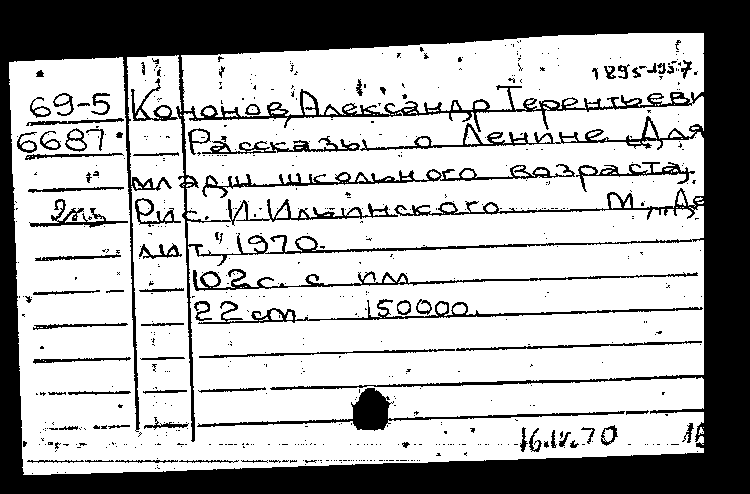 1895-1957.
69-5 Кононов, Александр Терентьеви
6687 Рассказы о Ленине [Для
младш школьного возраста].
Рис. И. Ильинского М., „Де
лит", 1970.
102 с. с илл
22 cm. 150000.
16.IV.70